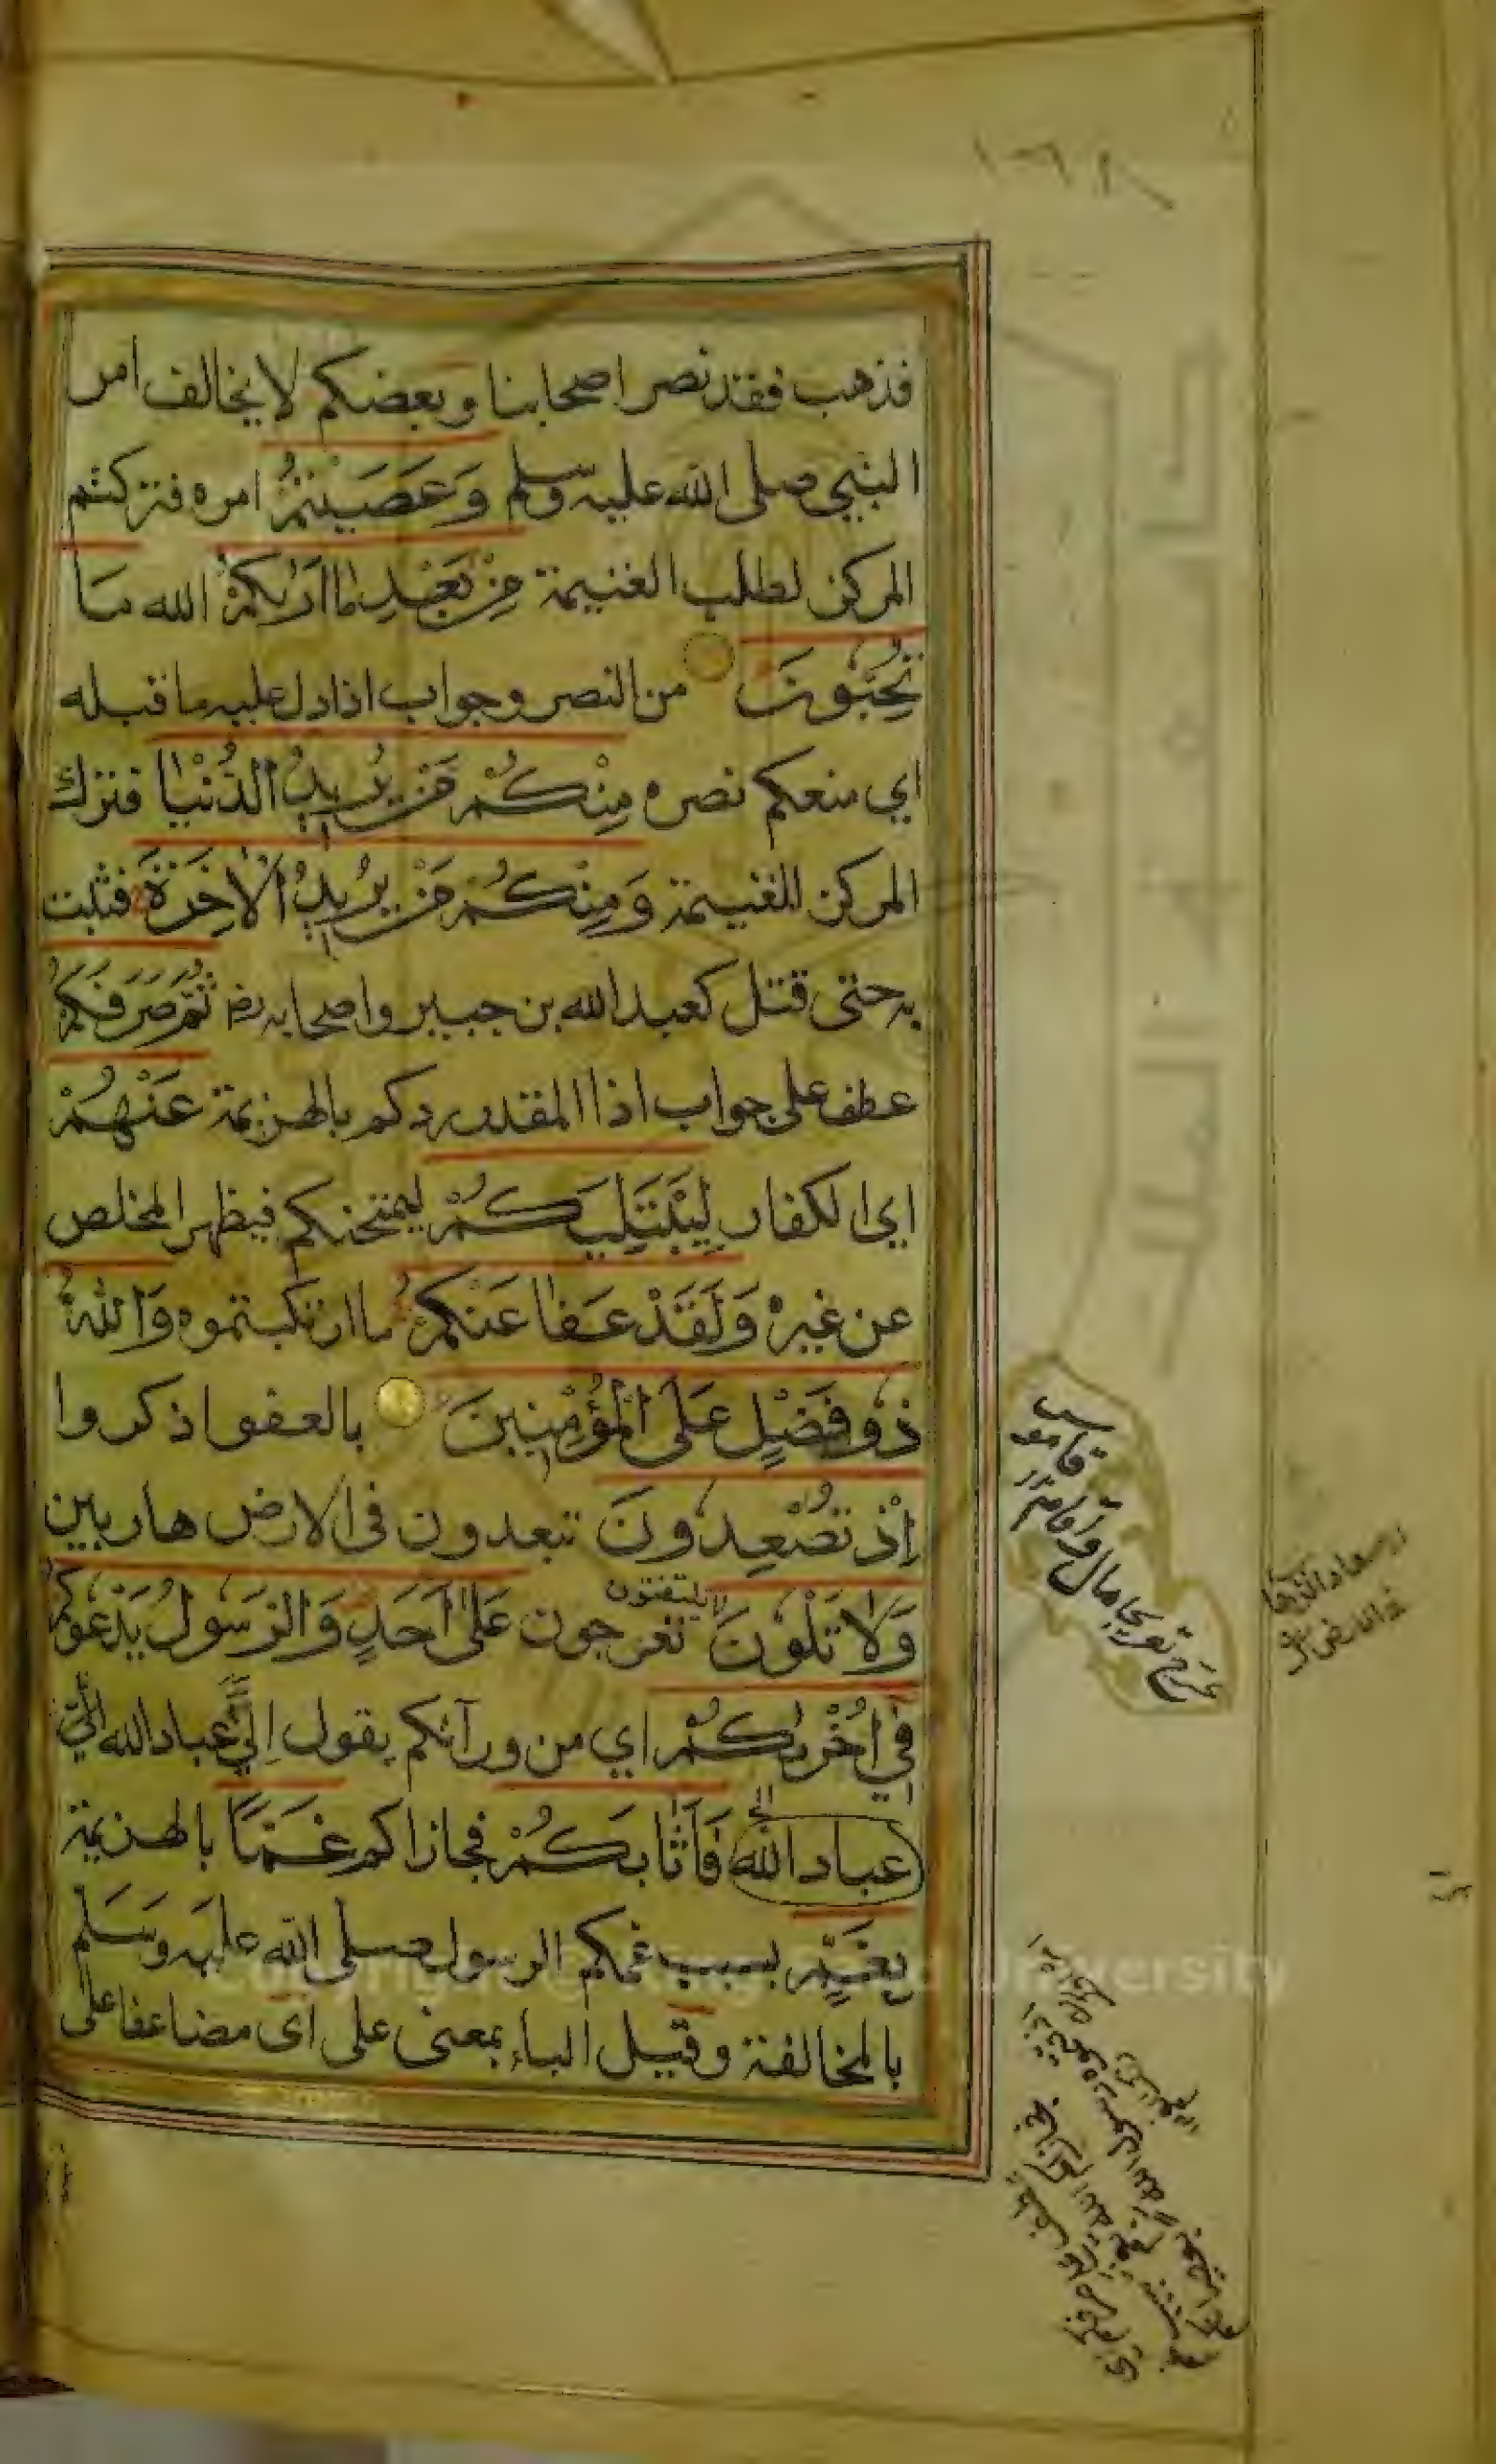 ١٣٨
فذهب فقد نصر اصحابنا وبعضكم لا يخالف امر
النبي صلى الله عليه وسلم وَعَصَيْتُمْ امره فتركتم
المركز لطلب الغنيمة مِنْ بَعْدِ مَا أَرٰىكُمْ الله مَا
تُحِبُّونَ من النصر وجواب اذا دل عليه ما قبله
اي منعكم نصره مِنْكُمْ مَنْ يُرِيدُ الدُّنْيَا فترك
المركز للغنيمة وَمِنْكُمْ مَنْ يُرِيدُ الْاٰخِرَةَ فثبت
به حتى قتل كعبد الله بن جبير واصحابه رض ثُمَّ صَرَفَكُمْ
عطف على جواب اذا المقدر ردكم بالهزيمة عَنْهُمْ
اي الكفار لِيَبْتَلِيَكُمْ ليمتحنكم فيظهر المخلص
عن غيره وَلَقَدْ عَفَا عَنْكُمْ ما ارتكبتموه وَاللّٰهُ
ذُو فَضْلٍ عَلَى الْمُؤْمِنِينَ بالعفو اذكروا
اِذْ تُصْعِدُونَ تبعدون في الارض هاربين
وَلَا تَلْوُنَ تعرجون عَلٰى اَحَدٍ وَالرَّسُولُ يَدْعُوكُمْ
يلتفتون
فِي اُخْرٰىكُمْ اي من ورآئكم يقول اِلَيَّ عباد الله اِلَيَّ
عباد الله فَاَثَابَكُمْ فجازاكم غَمًّا بالهزيمة
بِغَمٍّ بسبب غمكم الرسول صلى الله عليه وسلم
بالمخالفة وقيل الباء بمعنى على اى مضاعفا على
عرج تعريجا مال واقام
قاموس
University